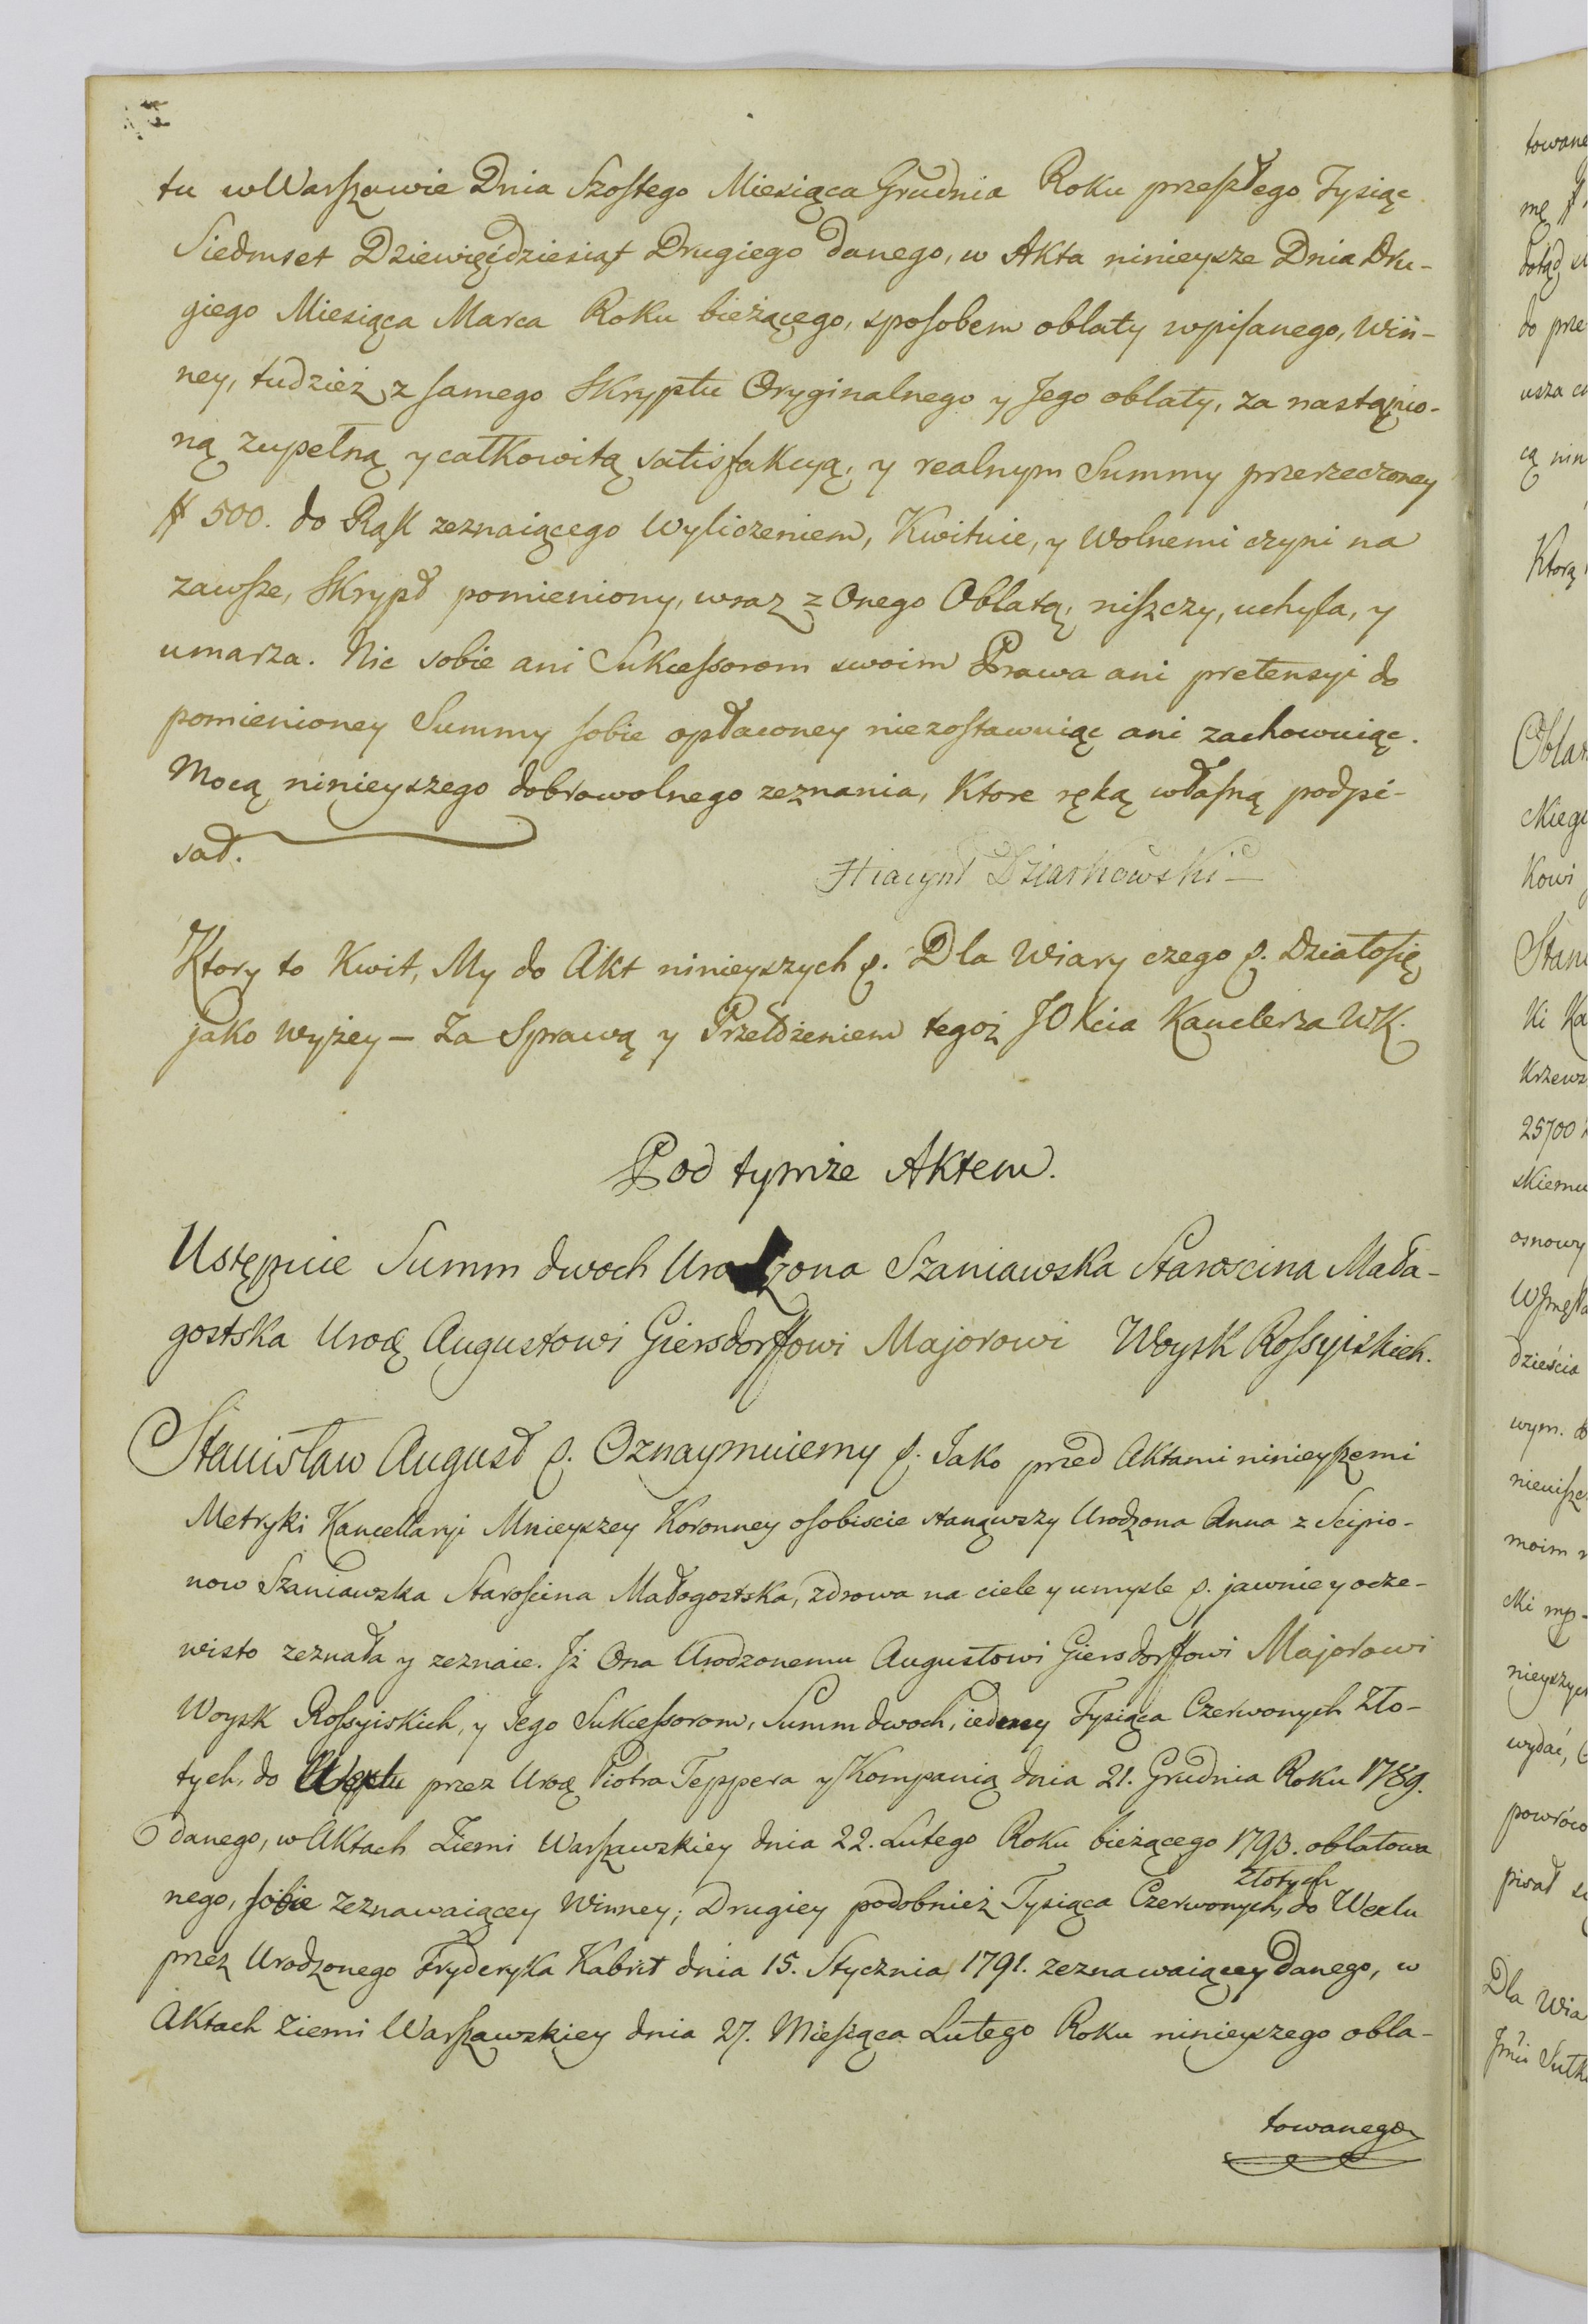 tu w Warszawie Dnia Szostego Miesiąca Grudnia Roku przeszłego Tysiąc
Siedmset Dziewięćdziesiąt Drugiego danego, w Akta ninieysze Dnia Dru-
giego Miesiąca Marca Roku bieżącego, sposobem oblaty wpisanego, Win-
ney, tudzież z samego Skryptu Oryginalnego y Jego oblaty, za nastąpio-
ną zupełną y całkowitą satisfakcyą, y realnym Summy przerzeczoney
# 500. do Rąk zeznaiącego Wyliczeniem, Kwituie, y Wolnemi czyni na
zawsze, Skrypt pomieniony, wraz z Onego Oblatą, niszczy, uchyla, y
umarza. Nic sobie ani Sukcessorom swoim Prawa ani pretensyi do
pomienioney Summy sobie opłaconey niezostawuiąc ani zachowuiąc.
Mocą ninieyszego dobrowolnego zeznania, Ktore ręką własną podpi-
sał.
Hiacynt Dziarkowski
Ktory to Kwit, My do Akt ninieyszych p. Dla Wiary czego p. Działo się
jako wyżey – Za Sprawą y Przełożeniem tegoż JO Xcia Kanclerza WK.
Pod tymże Aktem.
Ustępuie Summ dwoch Urodzona Szaniawska Starościna Mało-
gostska Urod Augustowi Giersdorffowi Majorowi Woysk Rossyiskich.
Stanisław August p. Oznaymuiemy p. Jako przed Aktami ninieyszemi
Metryki Kancellaryi Mnieyszey Koronney osobiscie stanąwszy Urodzona Anna z Scipio-
now Szaniawska Starościna Małogostska, zdrowa na ciele y umysle p. jawnie y ocze-
wisto zeznała y zeznaie. Jż Ona Urodzonemu Augustowi Giersdorffowi Majorowi
Woysk Rossyiskich, y Jego Sukcessorom, Summ dwoch, iedney Tysiąca Czerwonych Zło-
tych, do Wexlu przez Urod Piotra Teppera y Kompanią dnia 21. Grudnia Roku 1789.
danego, w Aktach Ziemi Warszawskiey dnia 22. Lutego Roku bieżącego 1793. oblatowa
nego, sobie zeznawaiącey Winney; Drugiey podobnież Tysiąca Czerwonych złotych do Wexlu
przez Urodzonego Fryderyka Kabrit dnia 15. Stycznia 1791. zeznawaiącey danego, w
Aktach Ziemi Warszawskiey dnia 27. Miesiąca Lutego Roku ninieyszego obla-
towanego
towane
mę
dotąd
do prze
usza
cą nin
Ktorą
Oblat
Kowi
Stan
Krzews
25700
skiemu
osnowy
dzieścia
wym.
moim
nieyszych
wydać,
powróco
pisał
Dla Wia